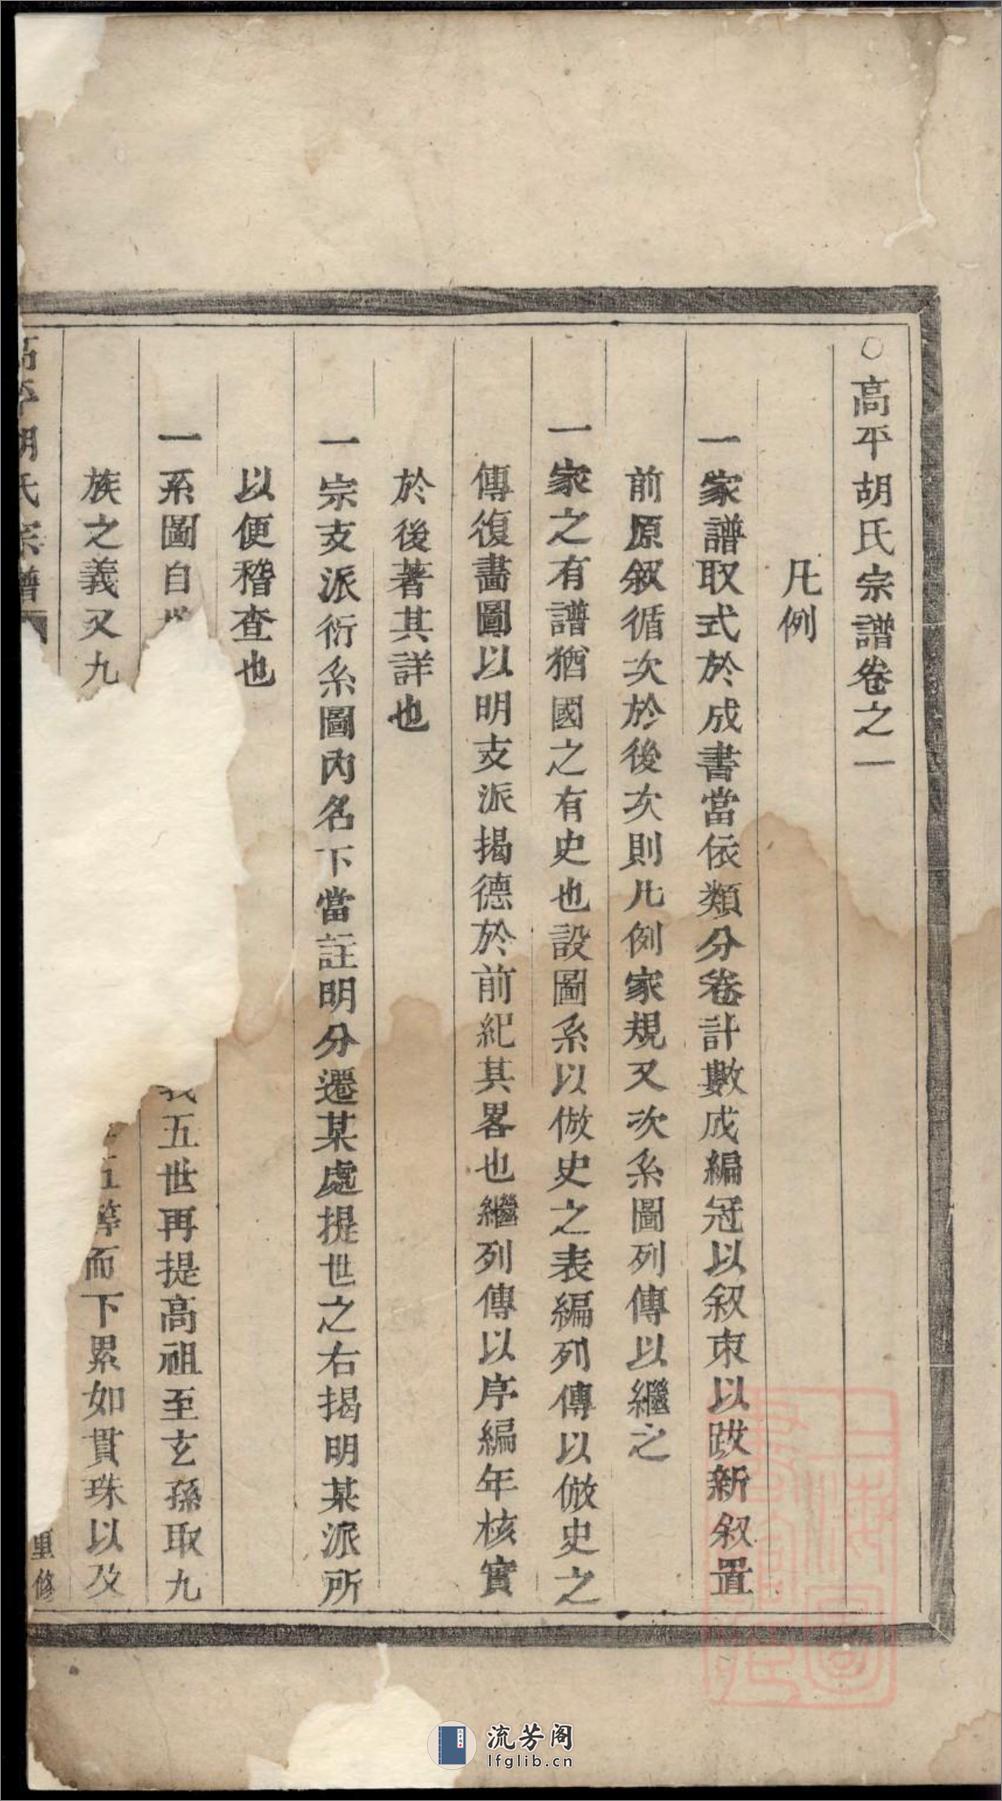 ○高平胡氏宗譜卷之一
凡例
一家譜取式於成書當依類分卷計數成編冠以叙束以跋新叙置
前原叙循次於後次則凡例家規又次系圖列傳以繼之
一家之有譜猶國之有史也設圖系以倣史之表編列傳以倣史之
傳復畵圖以明支派揭德於前紀其畧也繼列傳以序編年核實
於後著其詳也
一宗支派衍系圖內名下當註明分遷某處提世之右揭明某派所
以便稽查也
一系圖自 五世再提高祖至玄孫取九
族之義又九 等而下累如貫珠以及
高平胡氏宗譜 重修
流芳阁
lfglib.cn